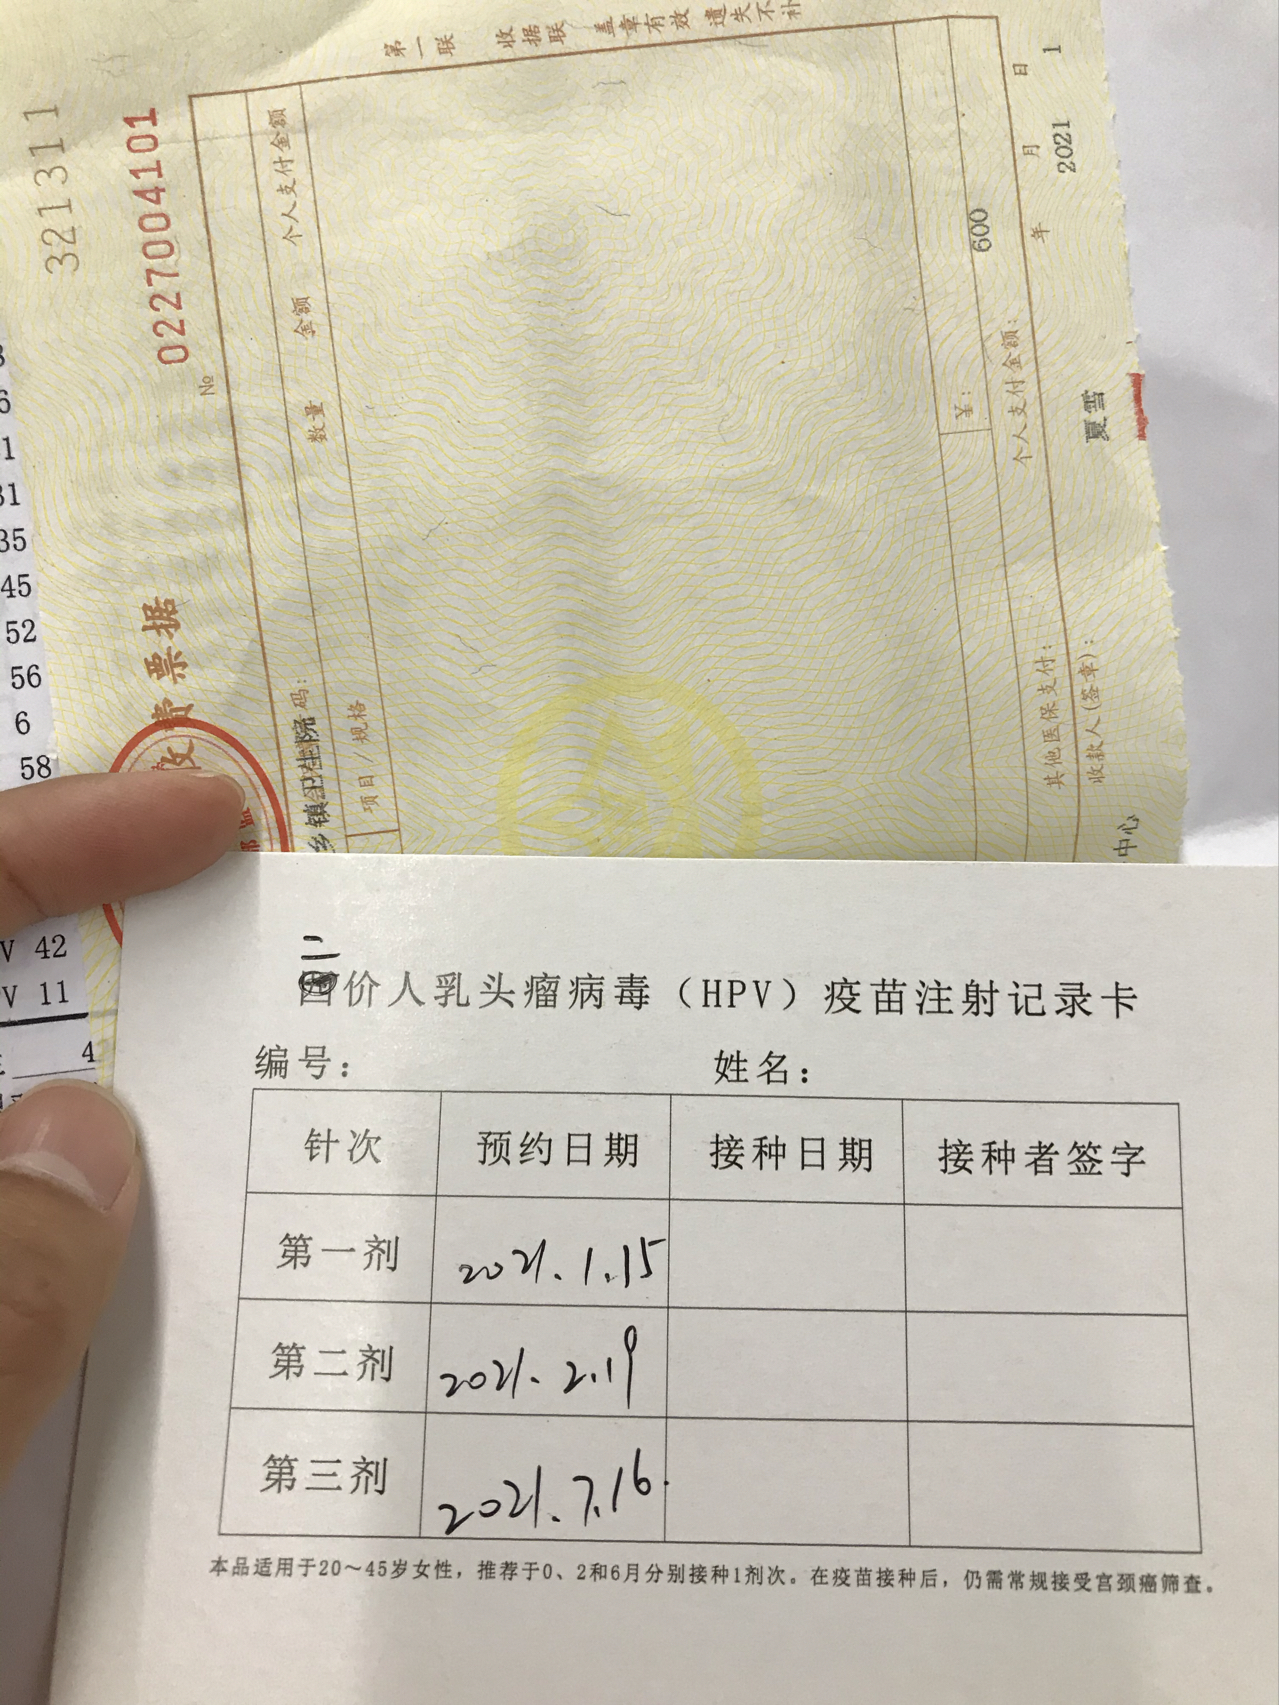 第一联 收据联 盖章有效 遗失不补
321311
0227004101
№
收费票据
乡镇卫生院
码:
项目/规格 数量 金额 个人支付金额
¥:
600
其他医保支付: 个人支付金额:
年 月 日
2021 1
收款人(签章):
夏雪
中心
6
1
31
35
45
52
56
6
58
V 42
PV 11
4
二
四价人乳头瘤病毒（HPV）疫苗注射记录卡
编号: 姓名:
针次 预约日期 接种日期 接种者签字
第一剂 2021.1.15
第二剂 2021.2.19
第三剂 2021.7.16.
本品适用于20～45岁女性，推荐于0、2和6月分别接种1剂次。在疫苗接种后，仍需常规接受宫颈癌筛查。